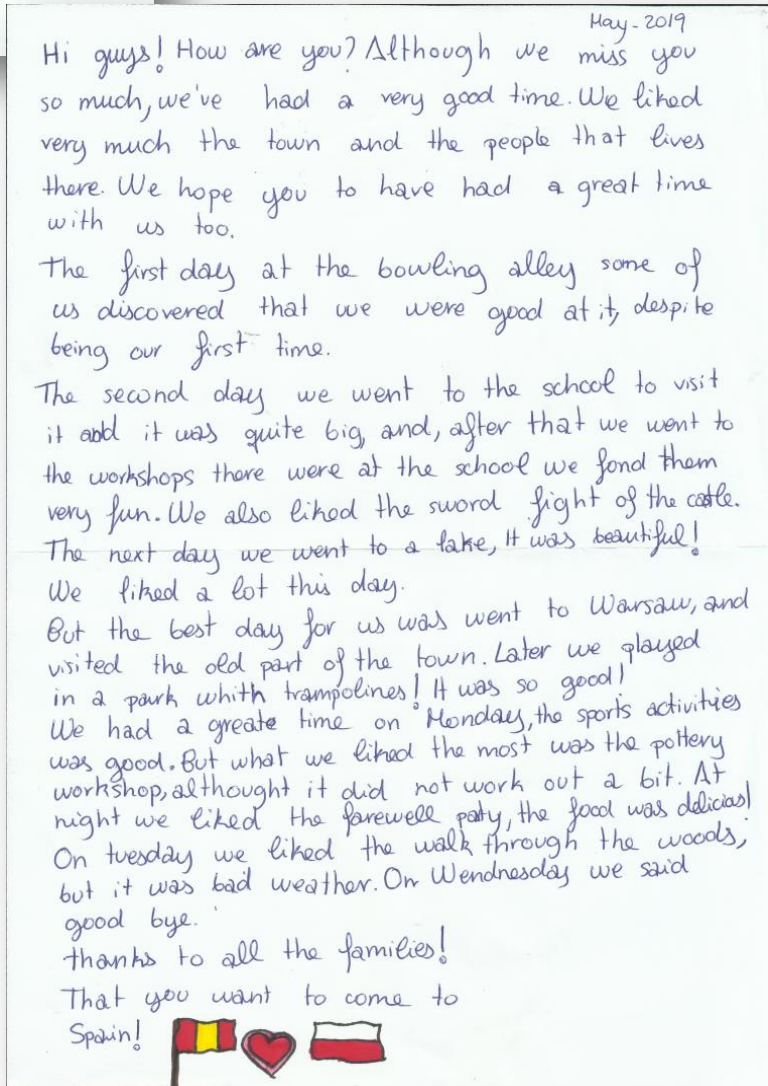 May-2019
Hi guys! How are you? Although we miss you
so much, we've had a very good time. We liked
very much the town and the people that lives
there. We hope you to have had a great time
with us too.
The first day at the bowling alley some of
us discovered that we were good at it, despite
being our first time.
The second day we went to the school to visit
it and it was quite big, and, after that we went to
the workshops there were at the school we fond them
very fun. We also liked the sword fight of the castle.
The next day we went to a lake, It was beautiful!
We liked a lot this day.
But the best day for us was went to Warsaw, and
visited the old part of the town. Later we played
in a park whith trampolines! It was so good!
We had a greate time on Monday, the sports activities
was good. But what we liked the most was the pottery
workshop, althought it did not work out a bit. At
night we liked the farewell paty, the food was delicias!
On tuesday we liked the walk through the woods,
but it was bad weather. On Wendnesday we said
good bye.
thanks to all the families!
That you want to come to
Spain!